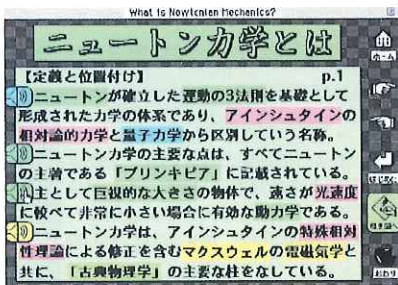 What is Newtonian Mechanics?
ニュートン力学とは
【定義と位置付け】 p.1
ニュートンが確立した運動の3法則を基礎として
形成された力学の体系であり、アインシュタインの
相対論的力学と量子力学から区別していう名称。
ニュートン力学の主要な点は、すべてニュートン
の主著である「プリンキピア」に記載されている。
主として巨視的な大きさの物体で、速さが光速度
に較べて非常に小さい場合に有効な動力学である。
ニュートン力学は、アインシュタインの特殊相対
性理論による修正を含むマクスウェルの電磁気学と
共に、「古典物理学」の主要な柱をなしている。
ホーム
おわり